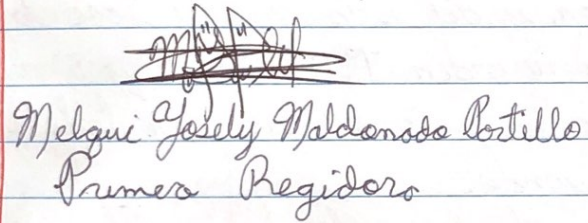 Melqui Yosely Maldonado Portillo
Primera Regidora